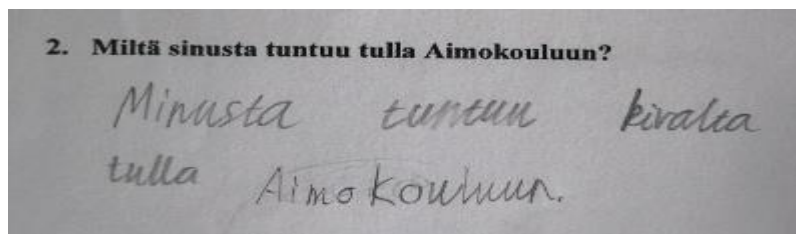 2. Miltä sinusta tuntuu tulla Aimokouluun?
Minusta tuntuu kivalta
tulla Aimokouluun.